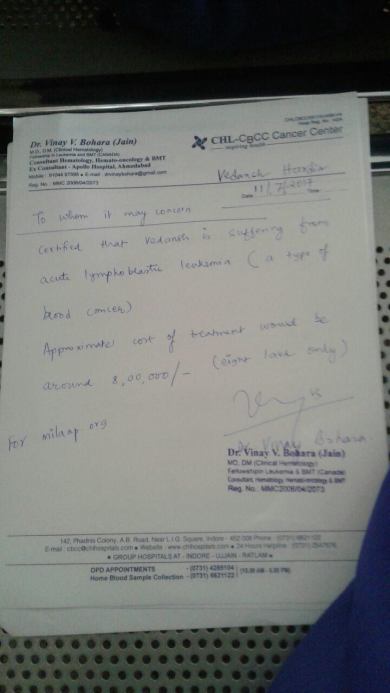 Dr. Vinay V. Bohara (Jain)
M.D., D.M. (Clinical Hematology)
Fellowship in Leukemia and BMT (Canada)
Consultant Hematology, Hemato-oncology & BMT
Ex Consultant - Apollo Hospital, Ahmedabad
E-mail : drvinaybohara@gmail.com
Reg. No. : MMC 2006/04/2073
CHL-CBCC Cancer Center
Vedansh
Date 11/7/2017
To whom it may concern
Certified that Vedansh is suffering from
acute lymphoblastic leukemia (a type of
blood cancer)
Approximate cost of treatment would be
around 8,00,000/- (eight lakh only)
For milaap org
Dr. Vinay Bohara
Dr. Vinay V. Bohara (Jain)
MD, DM (Clinical Hematology)
Fellowship in Leukemia & BMT (Canada)
Consultant, Hematology, Hemato-oncology & BMT
Reg. No.: MMC2006/04/2073
142, Phadnis Colony, A.B. Road, Near L.I.G. Square, Indore - 452 008 Phone : (0731) 6621122
E-mail : cbcc@chlhospitals.com • Website : www.chlhospitals.com • 24 Hours Helpline
• GROUP HOSPITALS AT - INDORE - UJJAIN - RATLAM •
OPD APPOINTMENTS - (0731) 4285104
Home Blood Sample Collection - (0731) 6621122